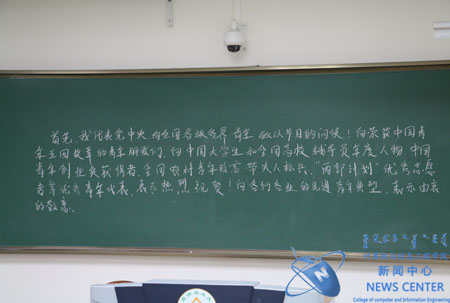 首先,我代表党中央,向全国各族各界青年,致以节日的问候!向荣获中国青
年五四奖章的青年朋友们,向中国大学生和全国高校辅导员年度人物,中国
青年创业奖获得者,全国农村青年致富带头人标兵,“西部计划”优秀志愿
者等优秀青年代表,表示热烈祝贺!向各行各业的先进青年典型,表示由衷
的敬意。
新闻中心
NEWS CENTER
College of computer and Information Engineering